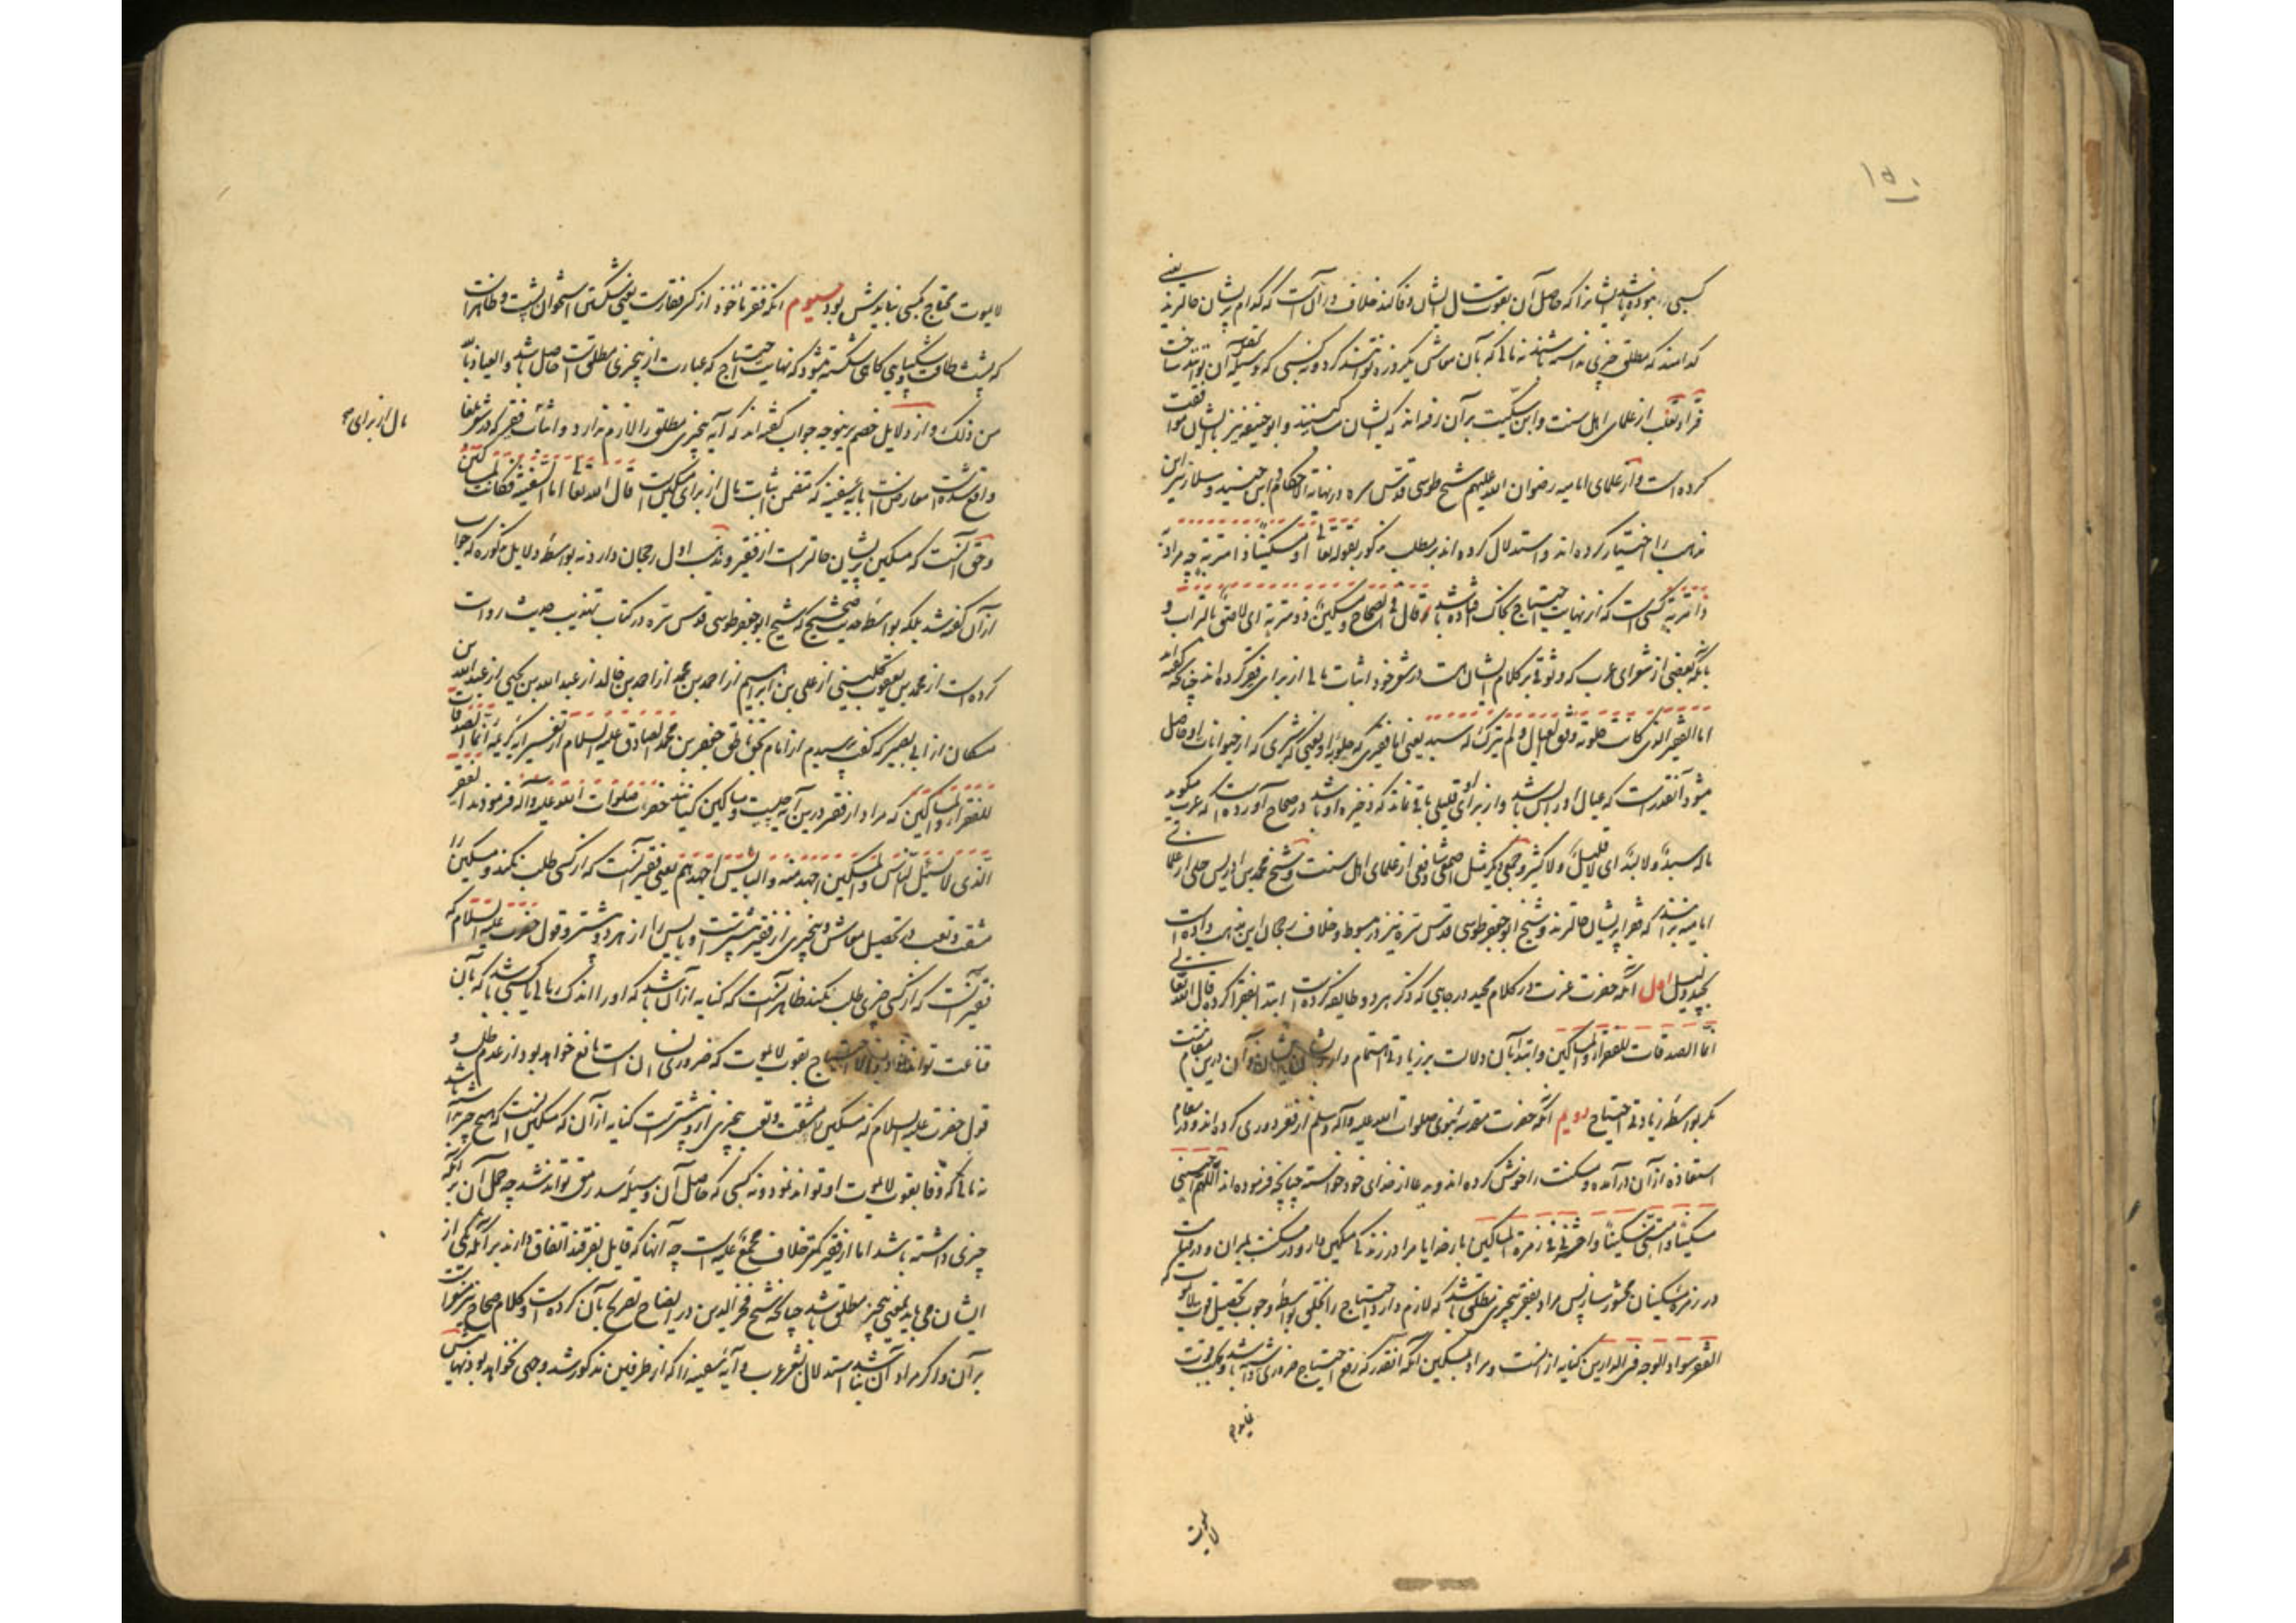 ۱۵۰
کسبی را نبوده باشد ایشانرا که حاصل آن بقوت سال ایشان وفا کند خلاف در آن است که کدام پریشان حالترند یعنی
کدامند که مطلق چیزی نداشته باشند نه مالی که بآن معاش یکروزه توانند کرد و نه کسبی که وسیله آن توانند ساخت
فرا و ثعلب از علمای اهل سنت و ابن سکیت بر آن رفته‌اند که ایشان مساکینند و ابو حنیفه نیز با ایشان موافقت
کرده است و از علمای امامیه رضوان الله علیهم شیخ طوسی قدس سره در نهایة الاحکام و ابن جنید و سلار نیز این
مذهب را اختیار کرده‌اند و استدلال کرده‌اند بر مطلب مذکور بقوله تعالی او مسکینا ذا متربة چه مراد از
ذا متربة کسی است که از نهایت احتیاج بخاک افتاده باشد قال فی الصحاح و مسکین ذو متربة ای لاصق بالتراب و
بآنکه بعضی از شعرای عرب که وثوق بر کلام ایشان هست در شعر خود اثبات مالی از برای فقیر کرده‌اند چنانکه گفته‌اند
اما الفقیر الذی کانت حلوبته وفق العیال و لم یترک له سبد یعنی اما فقیری که حلوبه او یعنی شیری که از حیوانات او حاصل
میشود آنقدر است که عیال او را بس باشد و از برای او قلیلی باقی نماند که ذخیره او باشد در صحاح آورده است که عرب میگوید
ماله سبد و لا لبد ای لا قلیل و لا کثیر و جمعی دیگر مثل اصمعی و شافعی از علمای اهل سنت و شیخ محمد بن ادریس حلی از علمای
امامیه بر آنند که فقرا پریشان حالترند و شیخ ابو جعفر طوسی قدس سره نیز در مبسوط و خلاف رجحان این مذهب داده است
بچند دلیل اول آنکه حضرت عزت در کلام مجید در جایی که ذکر هر دو طایفه کرده است ابتدا بفقرا کرده قال الله تعالی
انما الصدقات للفقراء و المساکین و ابتدا بآن دلالت بر زیادتی اهتمام دارد بشأن ایشان و آن درین مقام نیست
مگر بواسطه زیادتی احتیاج دویم آنکه حضرت مقدسه نبوی صلوات الله علیه و آله و سلم از فقر دوری کرده‌اند و در مقام
استعاذه از آن درآمده و مسکنت را خوش کرده‌اند و بدعا از خدای خود خواسته چنانچه فرموده‌اند اللهم احینی
مسکینا و امتنی مسکینا و احشرنی فی زمرة المساکین بار خدایا مرا در زندگی مسکین دار و در مسکنت بمیران و در قیامت
در زمره مسکینان محشور ساز پس مراد بفقر بیچیزی مطلق باشد که لازم دارد احتیاج را بخلق بواسطه وجوب تحصیل قوت لایموت که
الفقر سواد الوجه فی الدارین کنایه از آنست و مراد بمسکین آنکه آنقدر که رفع احتیاج ضروری شود داشته باشد و بیک قوت
لایموت
لایموت محتاج کسی نبایدش بود سیوم آنکه فقر ماخوذ از کسر فقارست یعنی شکستن استخوان پشت و ظاهر است
که پشت طاقت و شکیبایی گاهی شکسته میشود که نهایت احتیاج که عبارت از بیچیزی مطلقست حاصل باشد و العیاذ بالله
من ذلک و از دلایل خصم برین وجه جواب گفته‌اند که آیه بیچیزی مطلق را لازم ندارد و اثبات فقیر که در شعر شعرا
مال از برای
واقع شده است معارض است بآیه سفینه که متضمن اثبات مال از برای مسکین است قال الله تعالی اما السفینة فکانت لمساکین
و حق آنست که مسکین پریشان حالترست از فقیر و مذهب اول رجحان دارد نه بواسطه دلایل مذکوره که جواب
از آن گفته شد بلکه بواسطه حدیث صحیح که شیخ ابو جعفر طوسی قدس سره در کتاب تهذیب حدیث روایت
کرده است از محمد بن یعقوب کلینی از علی بن ابراهیم از احمد بن محمد از احمد بن خالد از عبد الله بن یحیی از عبد الله بن
مسکان از ابی بصیر که گفت پرسیدم از امام بحق ناطق جعفر بن محمد الصادق علیه السلام از تفسیر آیه کریمه انما الصدقات
للفقراء و المساکین که مراد از فقیر درین آیه چیست و مساکین کیانند حضرت صلوات الله علیه و آله فرمودند الفقیر
الذی لا یسئل الناس و المسکین اجهد منه و البایس اجهدهم یعنی فقیر آنست که از کسی طلب نکند و مسکین را
مشقت و تعب در تحصیل معاش و بیچیزی از فقیر بیشترست و بایس را از هر دو بیشتر و قول حضرت علیه السلام که
فقیر آنست که از کسی چیزی طلب نکند ظاهر آنست که کنایه از آن باشد که او را اندک مالی یا کسبی باشد که بآن
قناعت تواند نمود و الا احتیاج بقوت لایموت که ضروری انسان است مانع خواهد بود از عدم طلب و
قول حضرت علیه السلام که مسکین را مشقت و تعب بیچیزی ازو بیشترست کنایه از آن که مسکین آنست که هیچ چیز نداشته باشد
نه مالی که وفا بقوت لایموت او تواند نمود و نه کسبی که حاصل آن وسیله سد رمق تواند شد چه حمل آن بر آنکه
چیزی داشته باشد اما از فقیر کمتر خلاف مجمع علیه است چه آنها که قایل بفرقند اتفاق دارند بر آنکه یکی از
ایشان می‌باید بمعنی بیچیز مطلق باشد چنانکه شیخ فخر الدین در ایضاح تصریح بآن کرده است و کلام صحاح نیز مشعر است
بر آن و اگر مراد آن باشد استدلال بشعر عرب و آیه سفینه را که از طرفین مذکور شد وجهی نخواهد بود